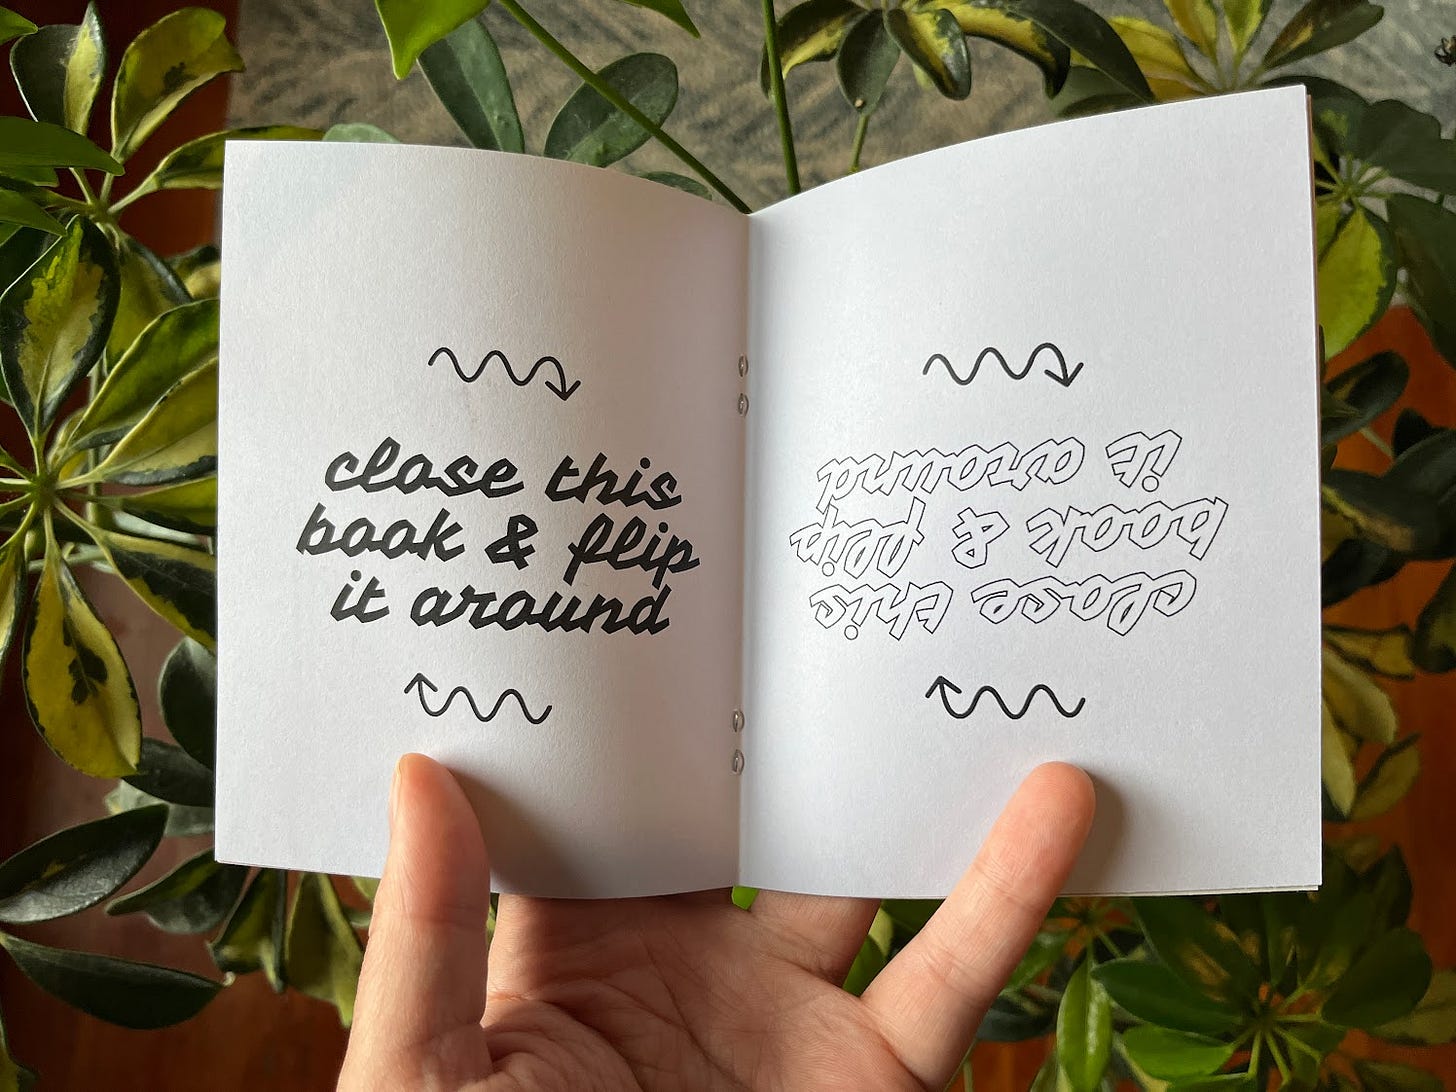 close this
book & flip
it around
close this
book & flip
it around